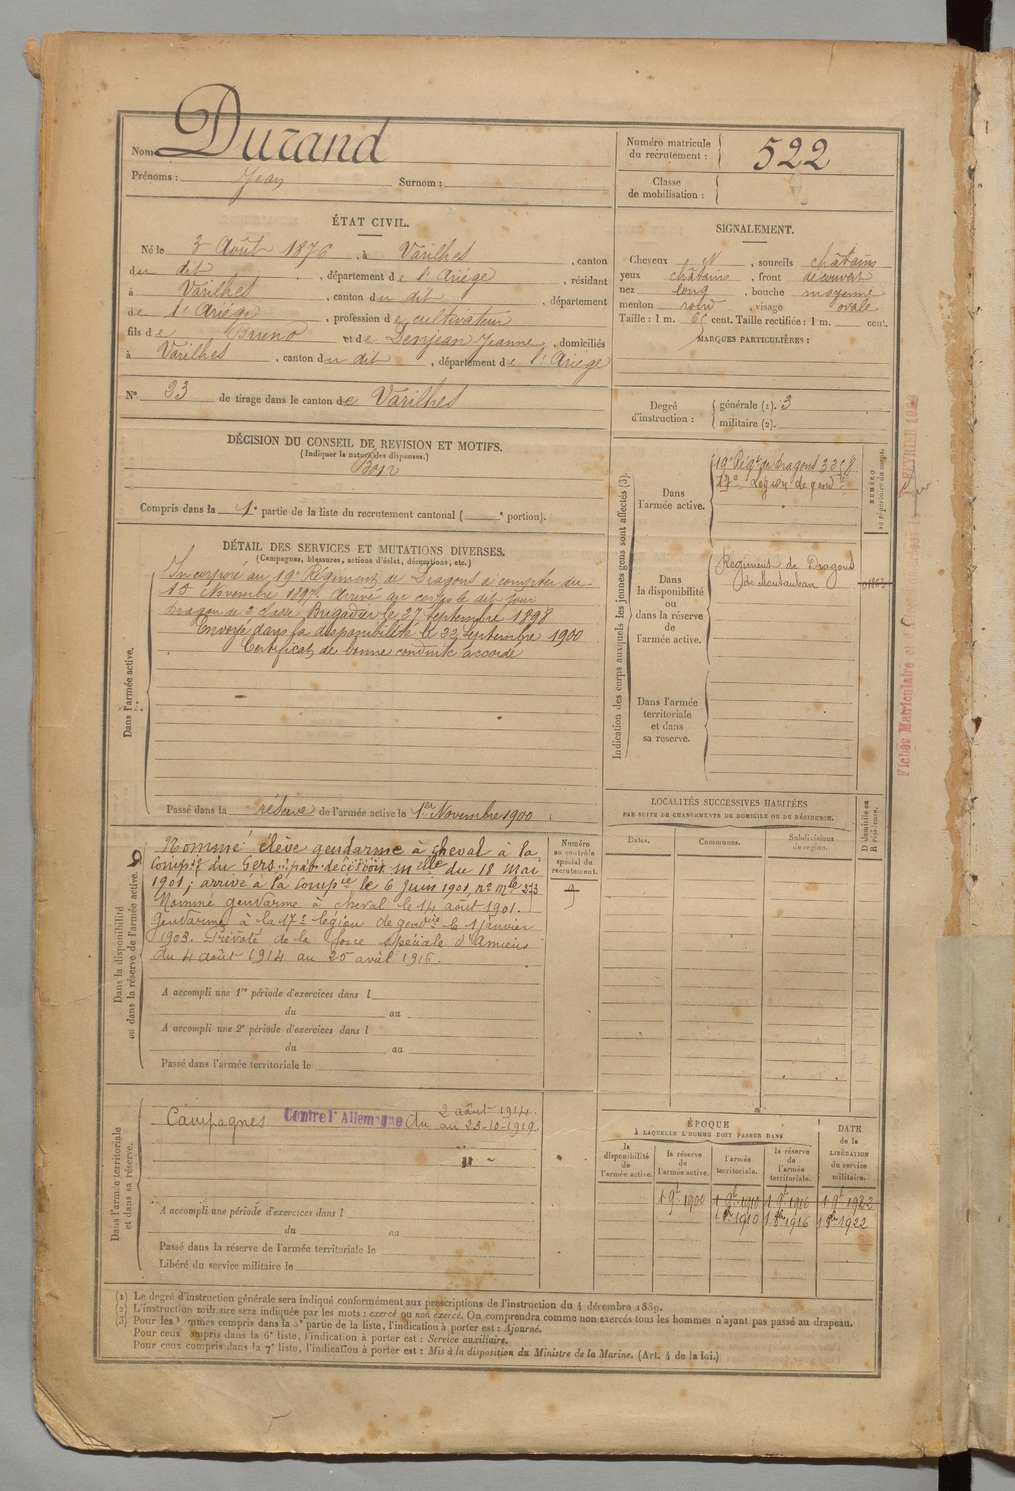 Nom Durand
Prénoms : Jean Surnom :
Numéro matricule du recrutement : 522
Classe de mobilisation :
ÉTAT CIVIL.
Né le 3 Août 1876, à Varilhes, canton
du dit, département de l'Ariège, résidant
à Varilhes, canton du dit, département
de l'Ariège, profession de cultivateur
fils de Bruno et de Denjean Jeanne, domiciliés
à Varilhes, canton du dit, département de l'Ariège
N° 23 de tirage dans le canton de Varilhes
SIGNALEMENT.
Cheveux et, sourcils châtains
yeux châtains, front découvert
nez long, bouche moyenne
menton rond, visage ovale
Taille : 1 m. 65 cent. Taille rectifiée : 1 m. cent.
MARQUES PARTICULIÈRES :
Degré d'instruction : générale (1). 3
militaire (2).
DÉCISION DU CONSEIL DE REVISION ET MOTIFS.
(Indiquer la nature des dispenses.)
Bon
Compris dans la 1e partie de la liste du recrutement cantonal ( e portion).
DÉTAIL DES SERVICES ET MUTATIONS DIVERSES.
(Campagnes, blessures, actions d'éclat, décorations, etc.)
Dans l'armée active.
Incorporé au 19e Régiment de Dragons à compter du
15 Novembre 1897. Arrivé au corps le dit jour
Dragon de 2 classe Brigadier le 27 septembre 1898
Envoyé dans la disponibilité le 22 septembre 1900
Certificat de bonne conduite accordé
Passé dans la réserve de l'armée active le 1er Novembre 1900
Indication des corps auxquels les jeunes gens sont affectés (3).
NUMÉRO au répertoire du corps.
Dans l'armée active.
19e Régt de Dragons 3258
17e Légion de gend
Dans la disponibilité ou dans la réserve de l'armée active.
Régiment de Dragons
de Montauban
Dans l'armée territoriale et dans sa réserve.
Fiches Matriculaire et
FÉVRIER
LOCALITÉS SUCCESSIVES HABITÉES
PAR SUITE DE CHANGEMENTS DE DOMICILE OU DE RÉSIDENCE.
Dates.
Communes.
Subdivisions de région.
D domicile ou R résidence.
Dans la disponibilité ou dans la réserve de l'armée active.
Numéro au contrôle spécial du recrutement.
Nommé élève gendarme à cheval à la
Compie du Gers par décision mlle du 18 Mai
1901 ; arrivé à la Compie le 6 Juin 1901, no mle 373
Nommé gendarme à cheval le 14 août 1901.
Gendarme à la 17e légion de gendrie le 1 janvier
1903. Prévôté de la force spéciale d'Amiens
du 4 août 1914 au 25 avril 1916.
A accompli une 1re période d'exercices dans l
du au
A accompli une 2e période d'exercices dans l
du au
Passé dans l'armée territoriale le
Dans l'armée territoriale et dans sa réserve.
Campagnes Contre l'Allemagne du 2 août 1914
au 23-10-1919
A accompli une période d'exercices dans l
du au
Passé dans la réserve de l'armée territoriale le
Libéré du service militaire le
ÉPOQUE
À LAQUELLE L'HOMME DOIT PASSER DANS
la disponibilité de l'armée active.
la réserve de l'armée active.
l'armée territoriale.
la réserve de l'armée territoriale.
DATE de la LIBÉRATION du service militaire.
1 9t 1900 1 9t 1910 1 9t 1916 1 9t 1922
1910 1916 1922
(1) Le degré d'instruction générale sera indiqué conformément aux prescriptions de l'instruction du 4 décembre 1889.
(2) L'instruction militaire sera indiquée par les mots : exercé ou non exercé. On comprendra comme non exercés tous les hommes n'ayant pas passé au drapeau.
(3) Pour les hommes compris dans la 5e partie de la liste, l'indication à porter est : Ajourné.
Pour ceux compris dans la 6e liste, l'indication à porter est : Service auxiliaire.
Pour ceux compris dans la 7e liste, l'indication à porter est : Mis à la disposition du Ministre de la Marine. (Art. 4 de la loi.)